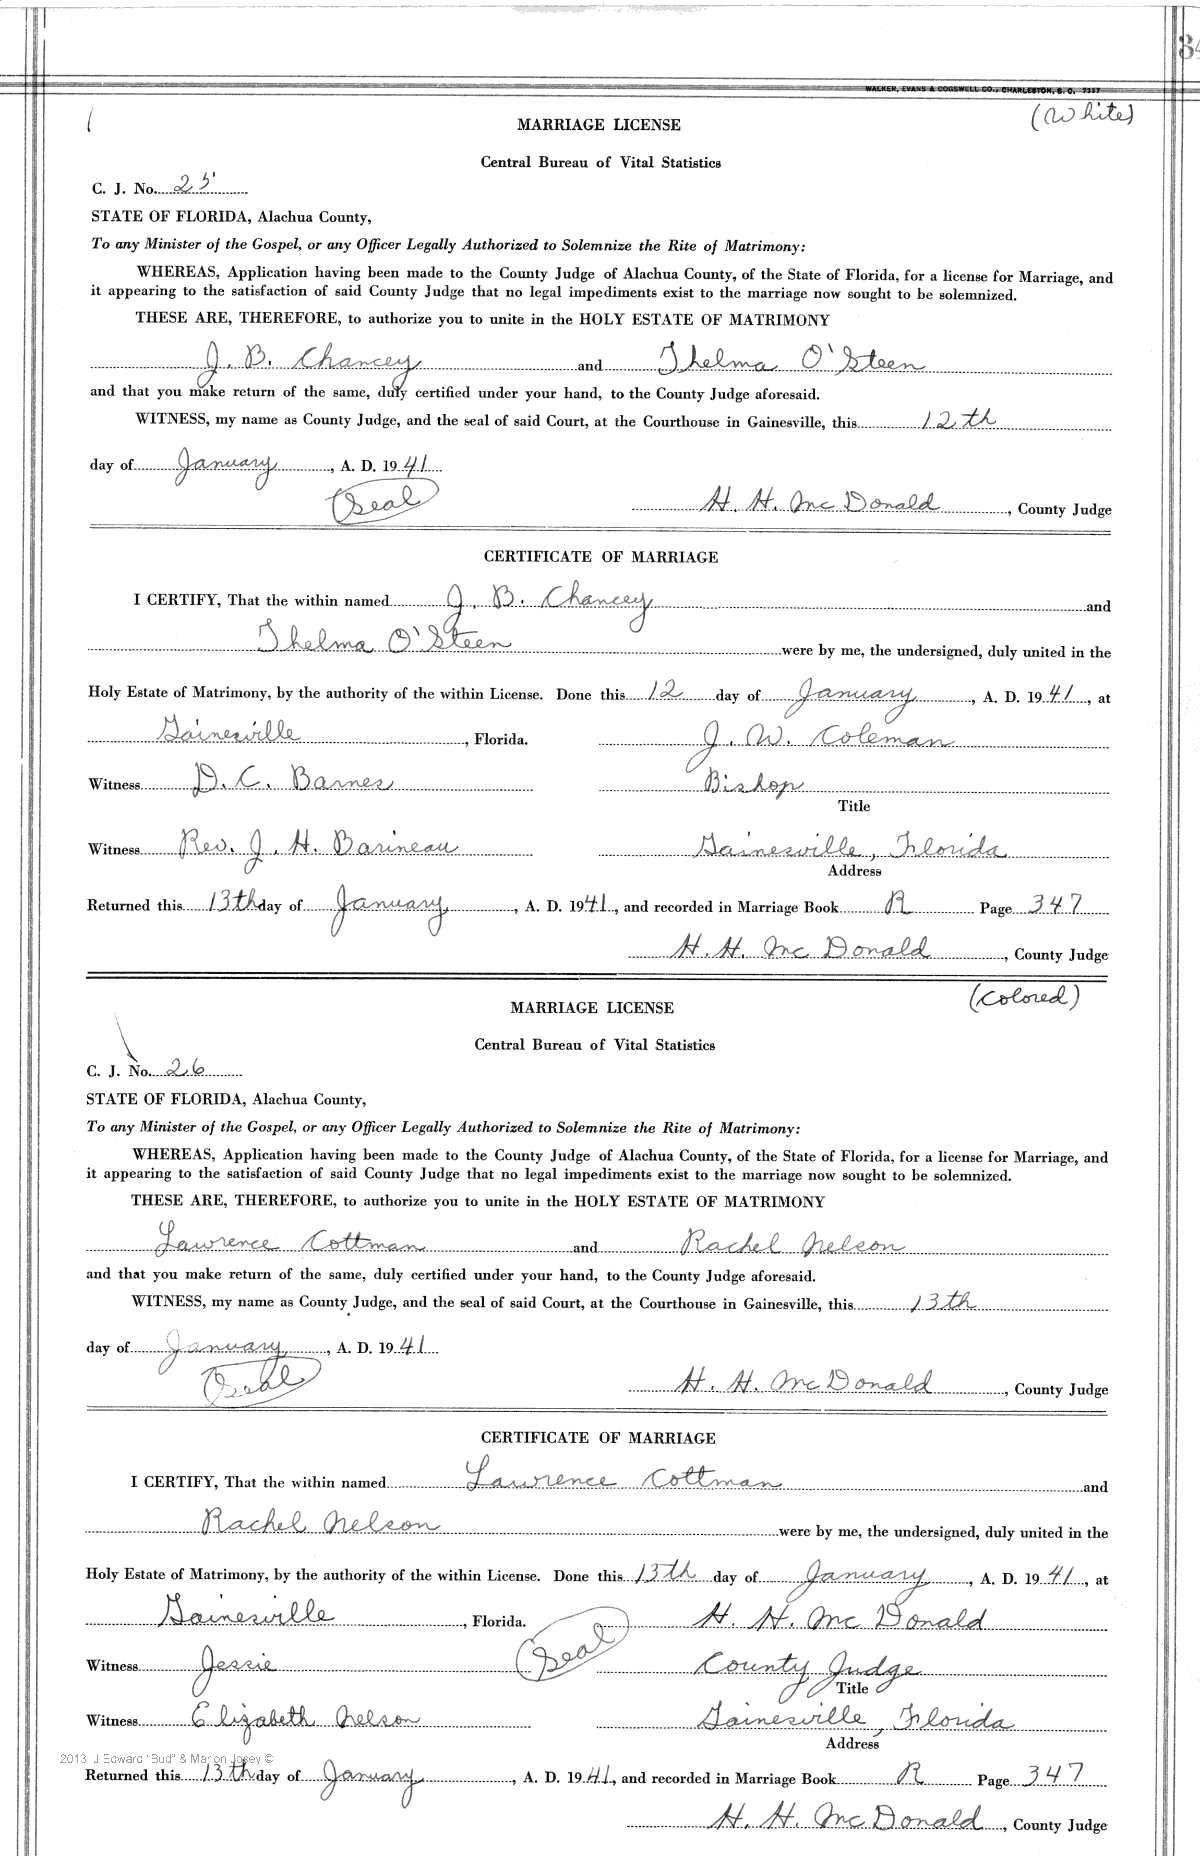 34
WALKER, EVANS & COGSWELL CO., CHARLESTON, S. C. 7337
(White)
MARRIAGE LICENSE
Central Bureau of Vital Statistics
C. J. No. 25
STATE OF FLORIDA, Alachua County,
To any Minister of the Gospel, or any Officer Legally Authorized to Solemnize the Rite of Matrimony:
WHEREAS, Application having been made to the County Judge of Alachua County, of the State of Florida, for a license for Marriage, and
it appearing to the satisfaction of said County Judge that no legal impediments exist to the marriage now sought to be solemnized.
THESE ARE, THEREFORE, to authorize you to unite in the HOLY ESTATE OF MATRIMONY
J. B. Chancey and Thelma O'Steen
and that you make return of the same, duly certified under your hand, to the County Judge aforesaid.
WITNESS, my name as County Judge, and the seal of said Court, at the Courthouse in Gainesville, this 12th
day of January, A. D. 1941
(Seal) H. H. McDonald, County Judge
CERTIFICATE OF MARRIAGE
I CERTIFY, That the within named J. B. Chancey and
Thelma O'Steen were by me, the undersigned, duly united in the
Holy Estate of Matrimony, by the authority of the within License. Done this 12 day of January, A. D. 1941, at
Gainesville, Florida. J. W. Coleman
Witness D. C. Barnes Bishop
Title
Witness Rev. J. H. Barineau Gainesville, Florida
Address
Returned this 13th day of January, A. D. 1941, and recorded in Marriage Book R Page 347
H. H. McDonald, County Judge
(Colored)
MARRIAGE LICENSE
Central Bureau of Vital Statistics
C. J. No. 26
STATE OF FLORIDA, Alachua County,
To any Minister of the Gospel, or any Officer Legally Authorized to Solemnize the Rite of Matrimony:
WHEREAS, Application having been made to the County Judge of Alachua County, of the State of Florida, for a license for Marriage, and
it appearing to the satisfaction of said County Judge that no legal impediments exist to the marriage now sought to be solemnized.
THESE ARE, THEREFORE, to authorize you to unite in the HOLY ESTATE OF MATRIMONY
Lawrence Cottman and Rachel Nelson
and that you make return of the same, duly certified under your hand, to the County Judge aforesaid.
WITNESS, my name as County Judge, and the seal of said Court, at the Courthouse in Gainesville, this 13th
day of January, A. D. 1941
(Seal) H. H. McDonald, County Judge
CERTIFICATE OF MARRIAGE
I CERTIFY, That the within named Lawrence Cottman and
Rachel Nelson were by me, the undersigned, duly united in the
Holy Estate of Matrimony, by the authority of the within License. Done this 13th day of January, A. D. 1941, at
Gainesville, Florida. (Seal) H. H. McDonald
Witness Jessie County Judge
Title
Witness Elizabeth Nelson Gainesville, Florida
Address
2013 J Edward "Bud" & Marion Josey ©
Returned this 13th day of January, A. D. 1941, and recorded in Marriage Book R Page 347
H. H. McDonald, County Judge